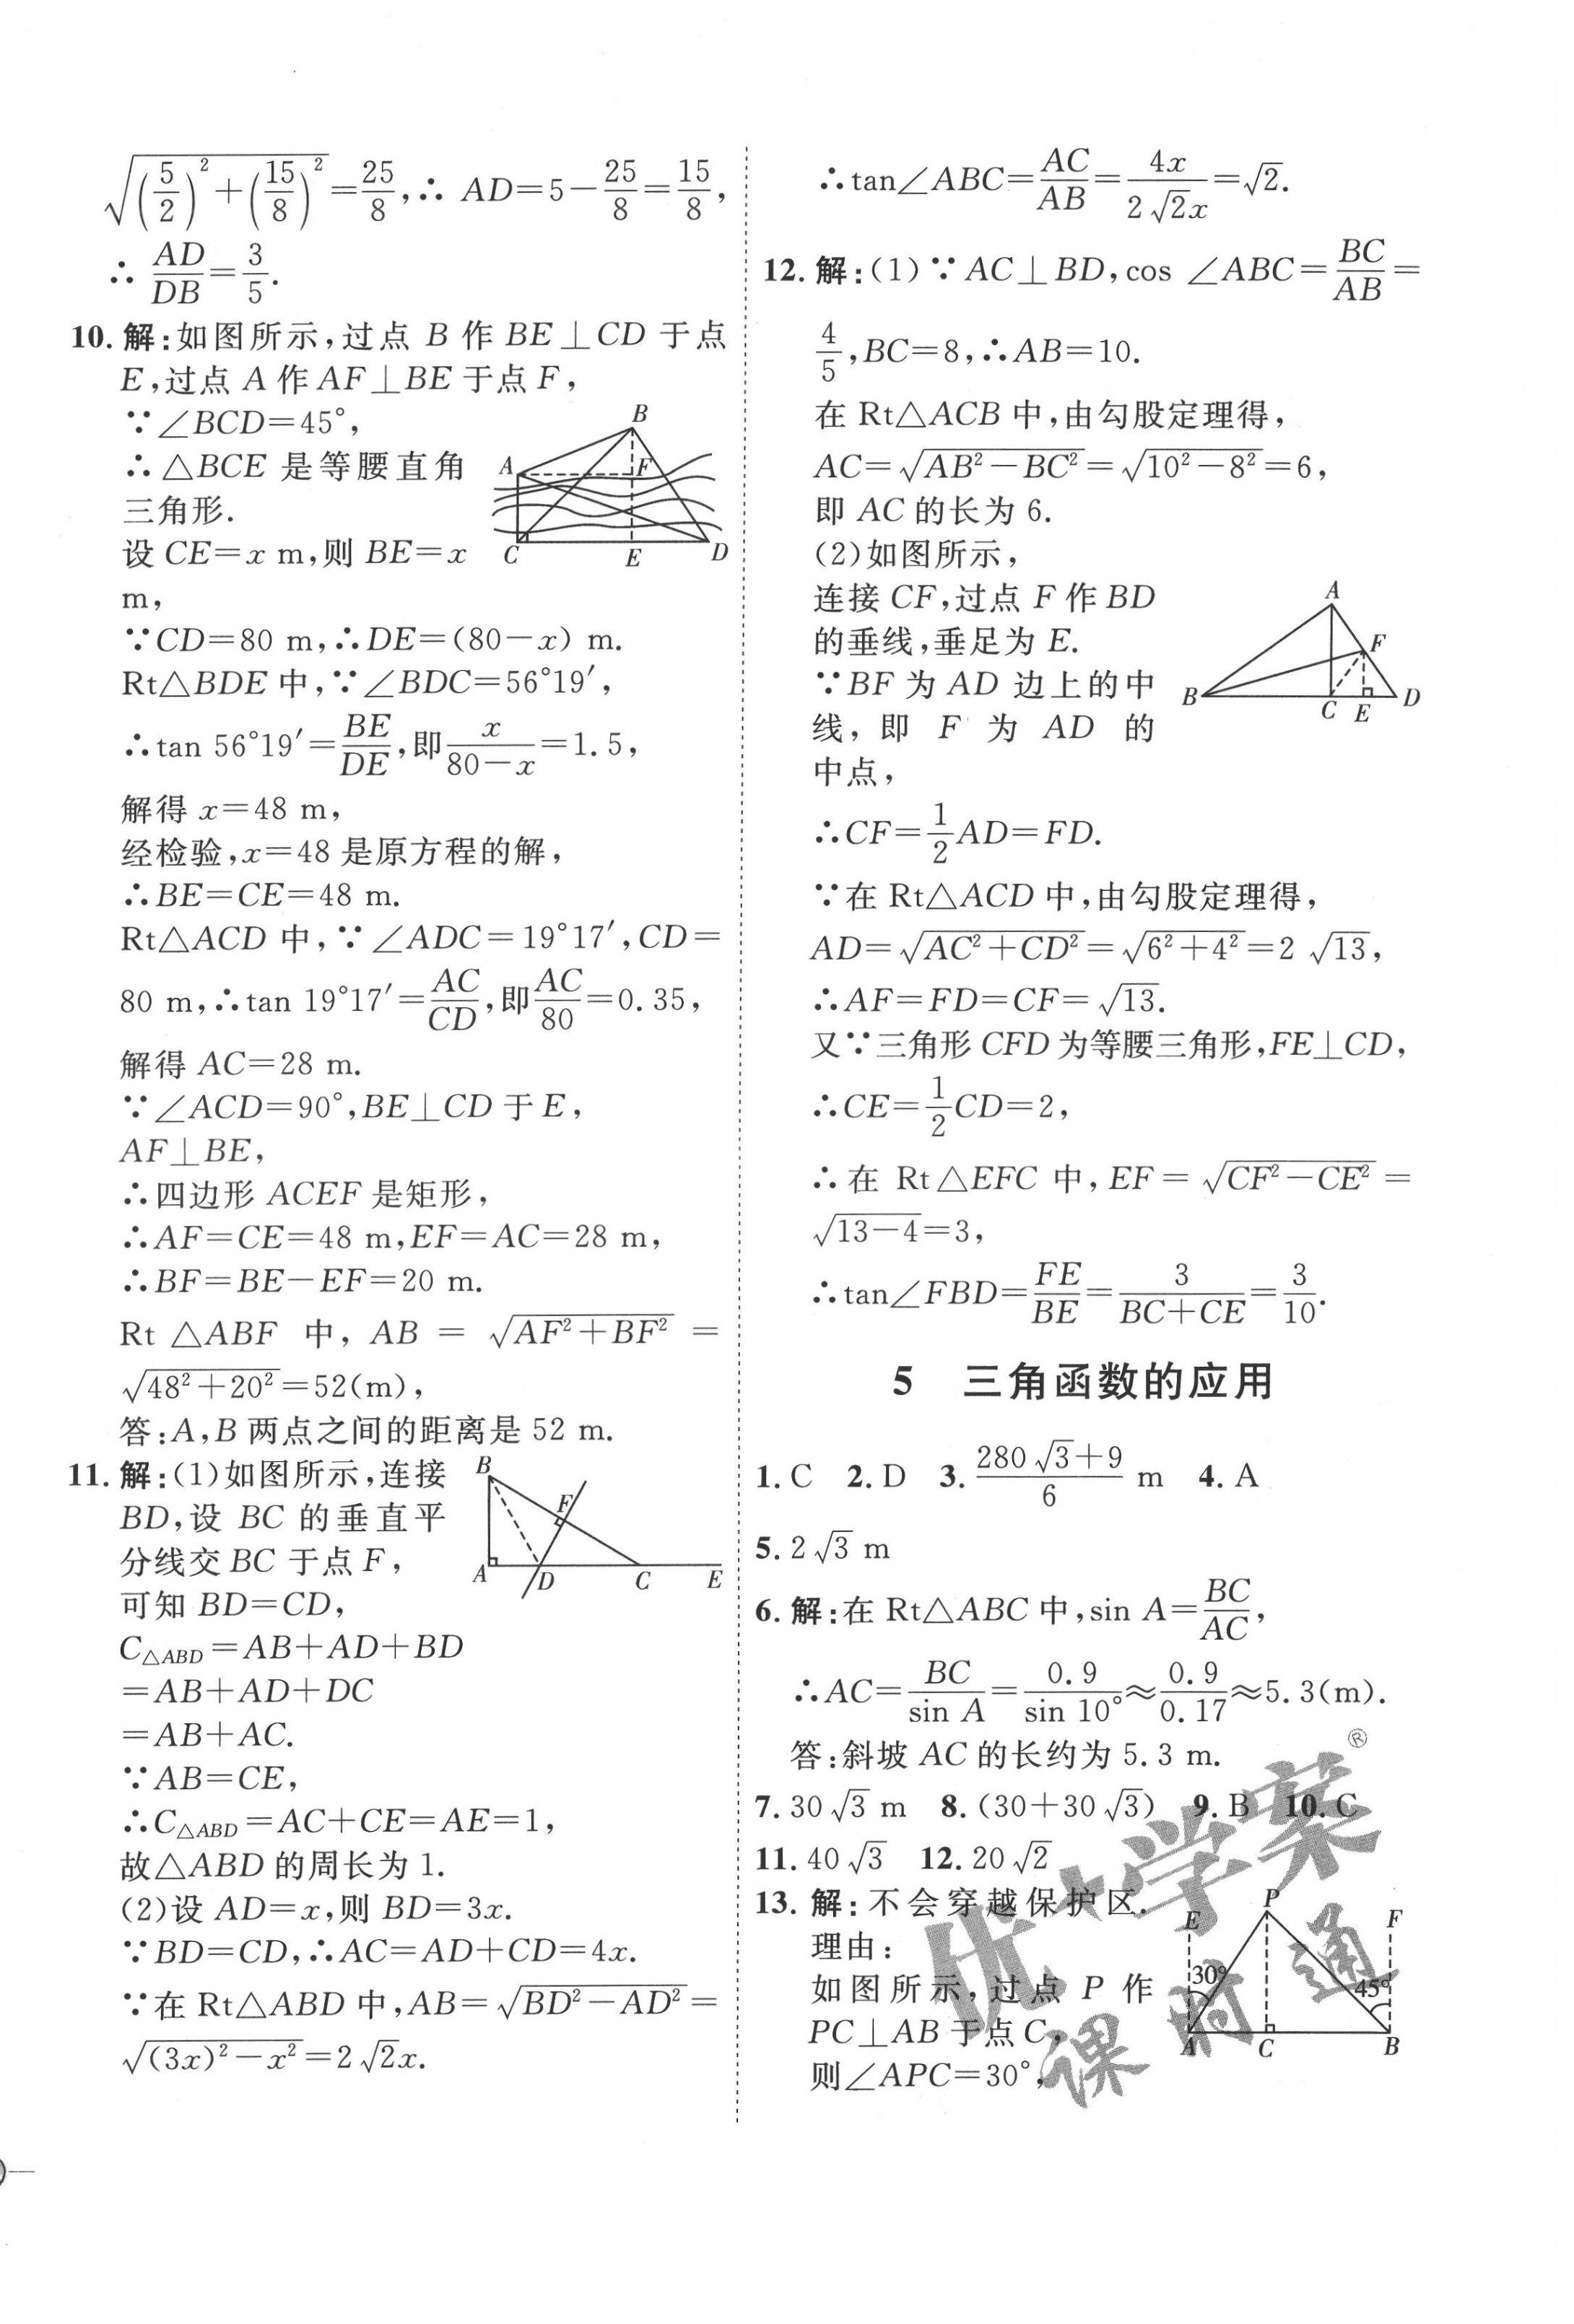 √((5/2)²+(15/8)²)=25/8,∴ AD=5-25/8=15/8,
∴ AD/DB=3/5.
10. 解:如图所示,过点 B 作 BE⊥CD 于点
E,过点 A 作 AF⊥BE 于点 F,
∵∠BCD=45°,
∴△BCE 是等腰直角
三角形.
设 CE=x m,则 BE=x
m,
B
A
F
C
E
D
∵CD=80 m,∴DE=(80-x) m.
Rt△BDE 中,∵∠BDC=56°19′,
∴tan 56°19′=BE/DE,即x/(80-x)=1.5,
解得 x=48 m,
经检验,x=48 是原方程的解,
∴BE=CE=48 m.
Rt△ACD 中,∵∠ADC=19°17′,CD=
80 m,∴tan 19°17′=AC/CD,即AC/80=0.35,
解得 AC=28 m.
∵∠ACD=90°,BE⊥CD 于 E,
AF⊥BE,
∴四边形 ACEF 是矩形,
∴AF=CE=48 m,EF=AC=28 m,
∴BF=BE-EF=20 m.
Rt △ABF 中, AB = √(AF²+BF²) =
√(48²+20²)=52(m),
答:A,B 两点之间的距离是 52 m.
11. 解:(1)如图所示,连接
BD,设 BC 的垂直平
分线交 BC 于点 F,
可知 BD=CD,
B
F
A
D
C
E
C△ABD=AB+AD+BD
=AB+AD+DC
=AB+AC.
∵AB=CE,
∴C△ABD=AC+CE=AE=1,
故△ABD 的周长为 1.
(2)设 AD=x,则 BD=3x.
∵BD=CD,∴AC=AD+CD=4x.
∵在 Rt△ABD 中,AB=√(BD²-AD²)=
√((3x)²-x²)=2√2x.
∴tan∠ABC=AC/AB=4x/(2√2x)=√2.
12. 解:(1)∵AC⊥BD,cos ∠ABC=BC/AB=
4/5,BC=8,∴AB=10.
在 Rt△ACB 中,由勾股定理得,
AC=√(AB²-BC²)=√(10²-8²)=6,
即 AC 的长为 6.
(2)如图所示,
连接 CF,过点 F 作 BD
的垂线,垂足为 E.
∵BF 为 AD 边上的中
线, 即 F 为 AD 的
中点,
A
F
B
C
E
D
∴CF=1/2AD=FD.
∵在 Rt△ACD 中,由勾股定理得,
AD=√(AC²+CD²)=√(6²+4²)=2√13,
∴AF=FD=CF=√13.
又∵三角形 CFD 为等腰三角形,FE⊥CD,
∴CE=1/2CD=2,
∴在 Rt△EFC 中,EF=√(CF²-CE²)=
√(13-4)=3,
∴tan∠FBD=FE/BE=3/(BC+CE)=3/10.
5 三角函数的应用
1. C 2. D 3. (280√3+9)/6 m 4. A
5. 2√3 m
6. 解:在 Rt△ABC 中,sin A=BC/AC,
∴AC=BC/sin A=0.9/sin 10°≈0.9/0.17≈5.3(m).
答:斜坡 AC 的长约为 5.3 m.
7. 30√3 m 8. (30+30√3) 9. B 10. C
11. 40√3 12. 20√2
13. 解:不会穿越保护区.
理由:
如图所示,过点 P 作
PC⊥AB于点C,
则∠APC=30°,
E
P
F
30°
45°
A
C
B
优+学案®
课时通